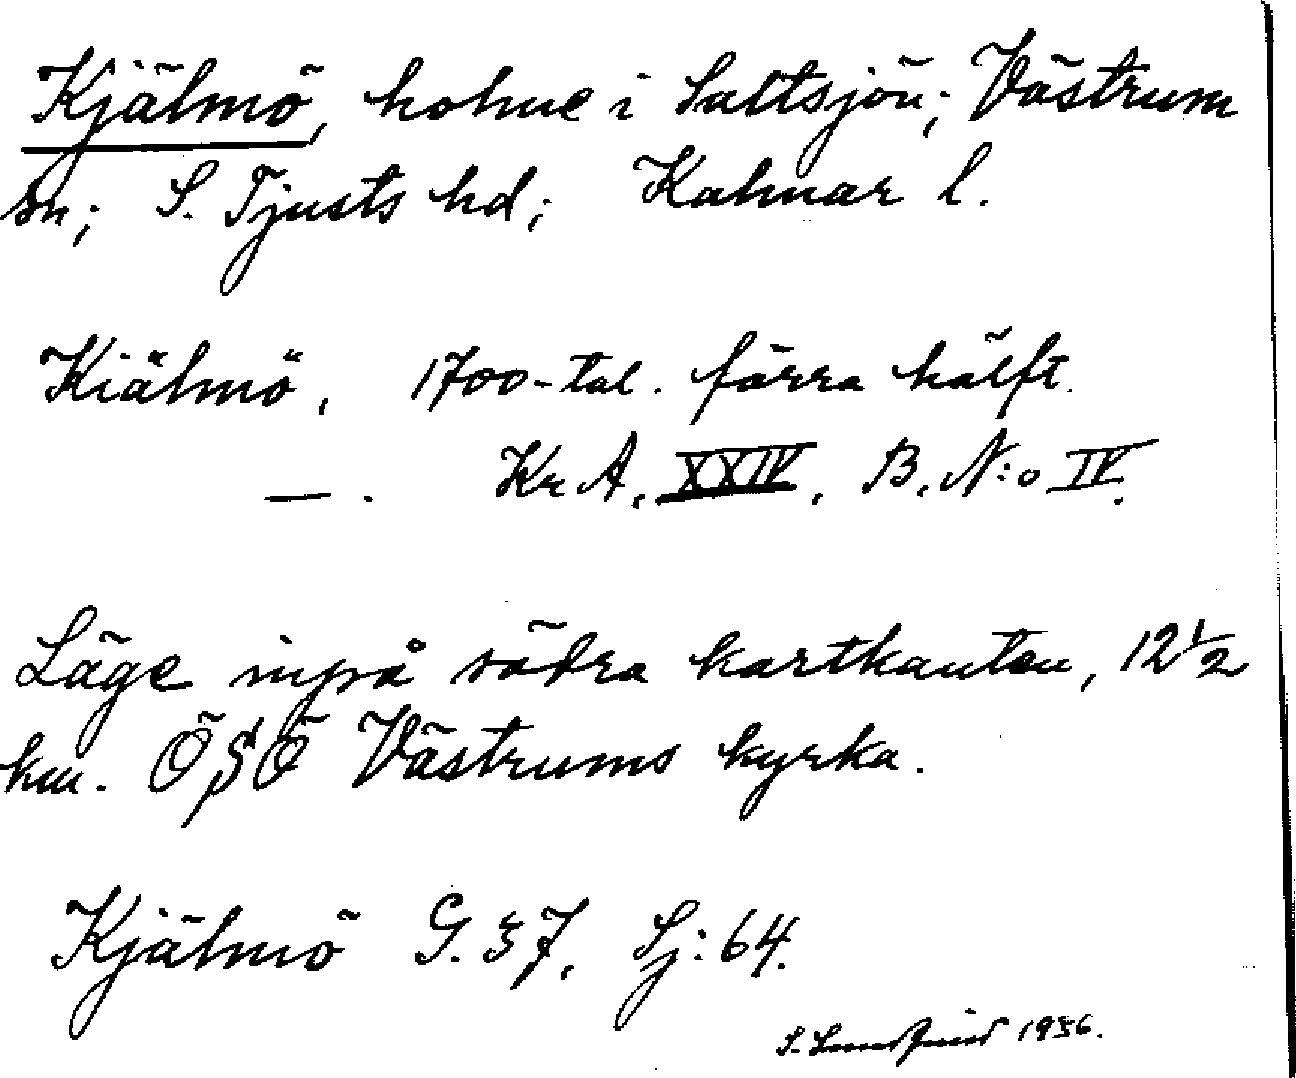 Kjälmö, holme i Saltsjön; Västrum
sn; S. Tjusts hd; Kalmar l.
Kiälmö, 1700-tal. förra hälft.
— . Kr A. XXIV, B. N:o IV.
Läge inpå södra kartkanten, 12 1/2
km. ÖSÖ Västrums kyrka.
Kjälmö G. 37, Sj: 64.
S. 1936.